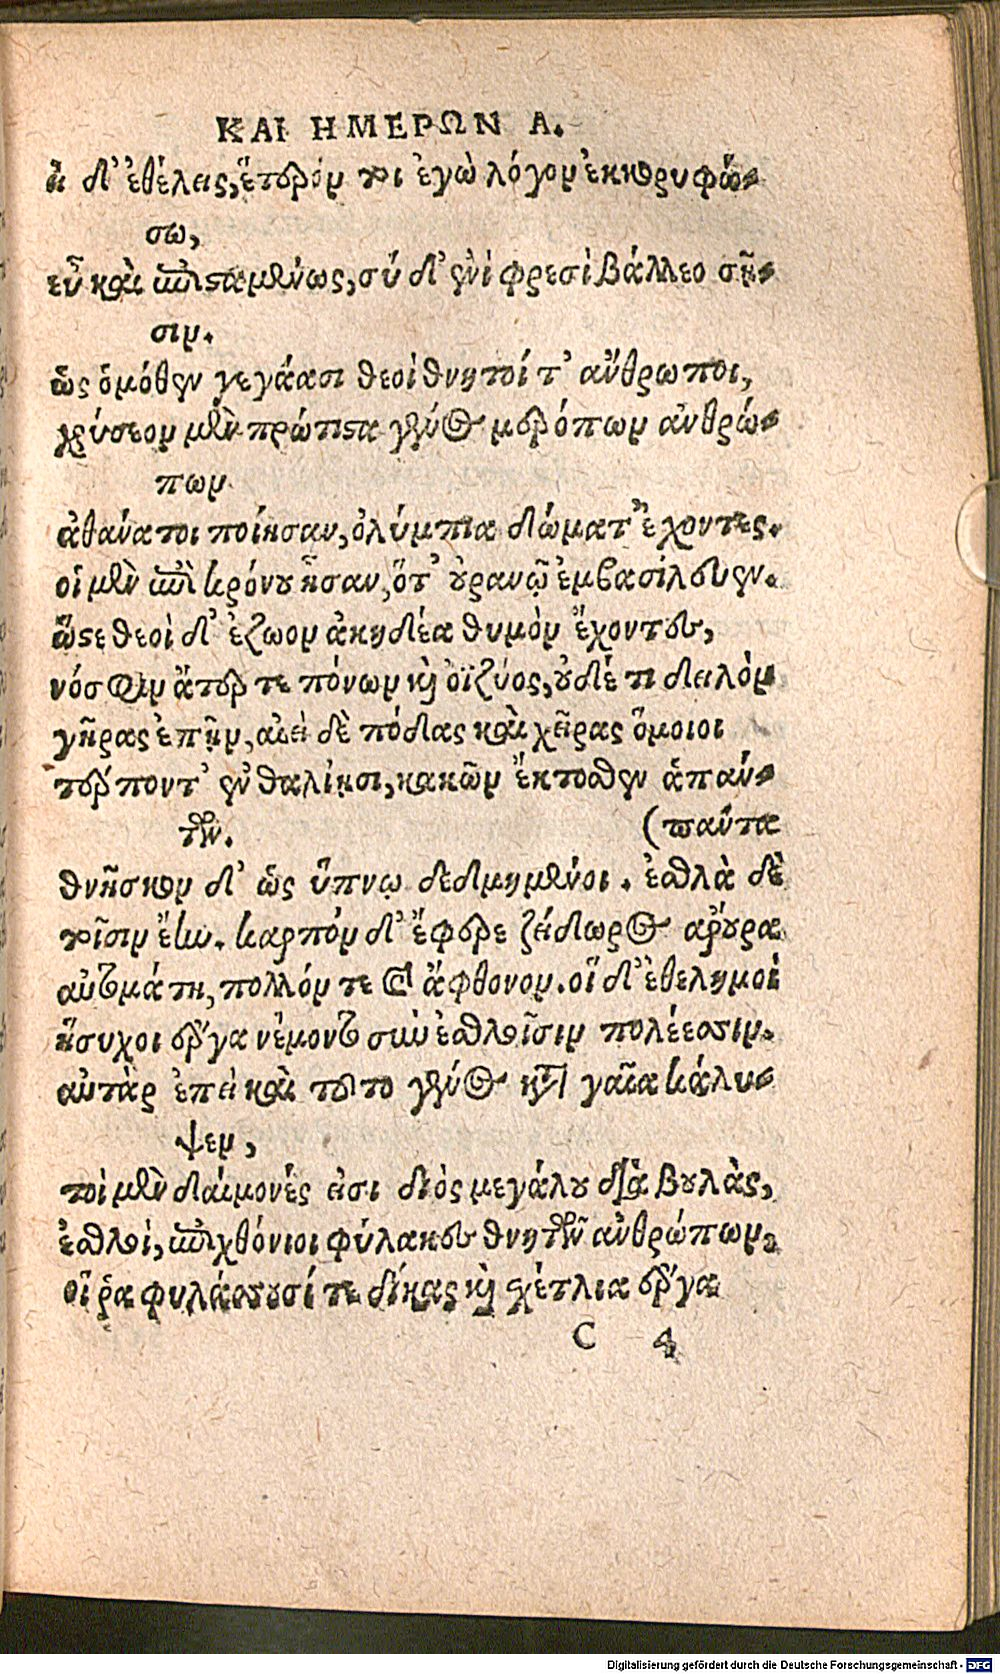 ΚΑΙ ΗΜΕΡΩΝ Α.
εἰ δ' ἐθέλεις, ἕτερόν τοι ἐγὼ λόγον ἐκκορυφώ-
σω,
εὖ καὶ ἐπισταμένως, σύ δ' ἐνὶ φρεσὶ βάλλεο σῇ-
σιν.
ὡς ὁμόθεν γεγάασι θεοὶ θνητοί τ' ἄνθρωποι,
χρύσεον μὲν πρώτιστα γένος μερόπων ἀνθρώ-
πων
ἀθάνατοι ποίησαν, ὀλύμπια δώματ' ἔχοντες.
οἱ μὲν ἐπὶ κρόνου ἦσαν, ὅτ' οὐρανῷ ἐμβασίλευεν.
ὥστε θεοὶ δ' ἔζωον ἀκηδέα θυμὸν ἔχοντες,
νόσφιν ἄτερ τε πόνων καὶ ὀϊζύος, οὐδέ τι δειλὸν
γῆρας ἐπῆν, αἰεὶ δὲ πόδας καὶ χεῖρας ὅμοιοι
τέρποντ' ἐν θαλίῃσι, κακῶν ἔκτοσθεν ἁπάν-
των. (πάντα
θνῆσκον δ' ὡς ὕπνῳ δεδμημένοι. ἐσθλὰ δὲ
τοῖσιν ἔην. καρπὸν δ' ἔφερε ζείδωρος ἄρουρα
αὐτομάτη, πολλόν τε καὶ ἄφθονον. οἵ δ' ἐθελημοὶ
ἥσυχοι ἔργα νέμοντο σὺν ἐσθλοῖσιν πολέεσσιν.
αὐτὰρ ἐπεὶ καὶ τοῦτο γένος κατὰ γαῖα κάλυ-
ψεν,
τοὶ μὲν δαίμονές εἰσι διὸς μεγάλου διὰ βουλὰς,
ἐσθλοὶ, ἐπιχθόνιοι φύλακες θνητῶν ἀνθρώπων,
οἵ ῥα φυλάσσουσί τε δίκας καὶ σχέτλια ἔργα
C 4
Digitalisierung gefördert durch die Deutsche Forschungsgemeinschaft - DFG